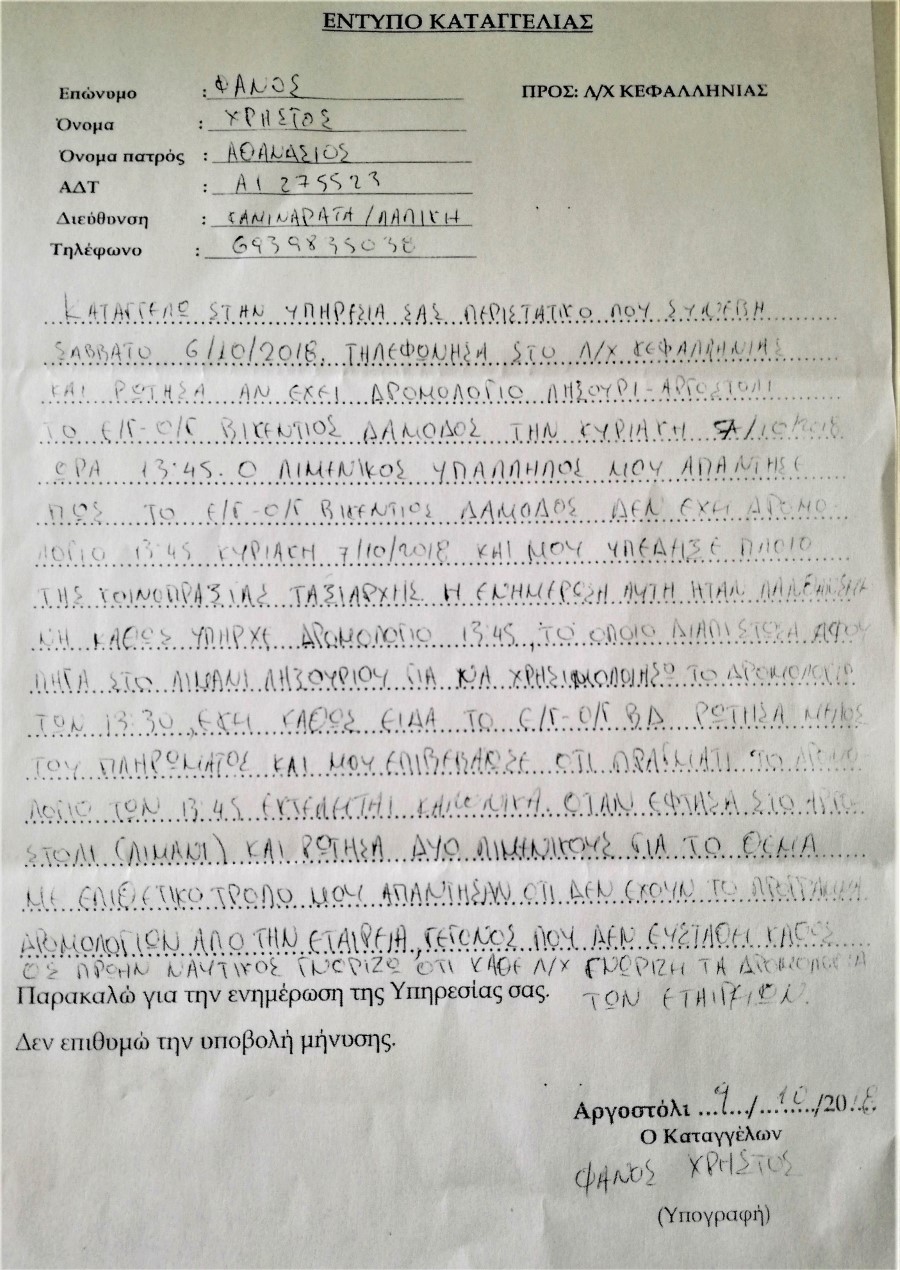 ΕΝΤΥΠΟ ΚΑΤΑΓΓΕΛΙΑΣ
Επώνυμο : ΦΑΝΟΣ
ΠΡΟΣ: Λ/Χ ΚΕΦΑΛΛΗΝΙΑΣ
Όνομα : ΧΡΗΣΤΟΣ
Όνομα πατρός : ΑΘΑΝΑΣΙΟΣ
ΑΔΤ : ΑΙ 275523
Διεύθυνση : ΚΑΜΙΝΑΡΑΤΑ/ΠΑΛΙΚΗ
Τηλέφωνο : 6939835038
ΚΑΤΑΓΓΕΛΩ ΣΤΗΝ ΥΠΗΡΕΣΙΑ ΣΑΣ ΠΕΡΙΣΤΑΤΙΚΟ ΠΟΥ ΣΥΝΕΒΗ
ΣΑΒΒΑΤΟ 6/10/2018. ΤΗΛΕΦΩΝΗΣΑ ΣΤΟ Λ/Χ ΚΕΦΑΛΛΗΝΙΑΣ
ΚΑΙ ΡΩΤΗΣΑ ΑΝ ΕΧΕΙ ΔΡΟΜΟΛΟΓΙΟ ΛΗΞΟΥΡΙ-ΑΡΓΟΣΤΟΛΙ
ΤΟ Ε/Γ-Ο/Γ ΒΙΚΕΝΤΙΟΣ ΔΑΜΟΔΟΣ ΤΗΝ ΚΥΡΙΑΚΗ 7/10/2018
ΩΡΑ 13:45. Ο ΛΙΜΕΝΙΚΟΣ ΥΠΑΛΛΗΛΟΣ ΜΟΥ ΑΠΑΝΤΗΣΕ
ΠΩΣ ΤΟ Ε/Γ-Ο/Γ ΒΙΚΕΝΤΙΟΣ ΔΑΜΟΔΟΣ ΔΕΝ ΕΧΕΙ ΔΡΟΜΟ-
ΛΟΓΙΟ 13:45 ΚΥΡΙΑΚΗ 7/10/2018 ΚΑΙ ΜΟΥ ΥΠΕΔΗΞΕ ΠΛΟΙΟ
ΤΗΣ ΚΟΙΝΟΠΡΑΞΙΑΣ ΤΑΞΙΑΡΧΗΣ. Η ΕΝΗΜΕΡΩΣΗ ΑΥΤΗ ΗΤΑΝ ΛΑΝΘΑΣΜΕ
ΝΗ ΚΑΘΩΣ ΥΠΗΡΧΕ ΔΡΟΜΟΛΟΓΙΟ 13:45, ΤΟ ΟΠΟΙΟ ΔΙΑΠΙΣΤΩΣΑ ΑΦΟΥ
ΠΗΓΑ ΣΤΟ ΛΙΜΑΝΙ ΛΗΞΟΥΡΙΟΥ ΓΙΑ ΝΑ ΧΡΗΣΙΜΟΠΟΙΗΣΩ ΤΟ ΔΡΟΜΟΛΟΓΙΟ
ΤΩΝ 13:30, ΕΚΕΙ ΚΑΘΩΣ ΕΙΔΑ ΤΟ Ε/Γ-Ο/Γ Β.Δ. ΡΩΤΗΣΑ ΜΕΛΟΣ
ΤΟΥ ΠΛΗΡΩΜΑΤΟΣ ΚΑΙ ΜΟΥ ΕΠΙΒΕΒΑΙΩΣΕ ΟΤΙ ΠΡΑΓΜΑΤΙ ΤΟ ΔΡΟΜΟ-
ΛΟΓΙΟ ΤΩΝ 13:45 ΕΚΤΕΛΕΙΤΑΙ ΚΑΝΟΝΙΚΑ. ΟΤΑΝ ΕΦΤΑΣΑ ΣΤΟ ΑΡΓΟ-
ΣΤΟΛΙ (ΛΙΜΑΝΙ) ΚΑΙ ΡΩΤΗΣΑ ΔΥΟ ΛΙΜΕΝΙΚΟΥΣ ΓΙΑ ΤΟ ΘΕΜΑ
ΜΕ ΕΠΙΘΕΤΙΚΟ ΤΡΟΠΟ ΜΟΥ ΑΠΑΝΤΗΣΑΝ ΟΤΙ ΔΕΝ ΕΧΟΥΝ ΤΟ ΠΡΟΓΡΑΜΜΑ
ΔΡΟΜΟΛΟΓΙΩΝ ΑΠΟ ΤΗΝ ΕΤΑΙΡΕΙΑ, ΓΕΓΟΝΟΣ ΠΟΥ ΔΕΝ ΕΥΣΤΑΘΕΙ ΚΑΘΩΣ
ΩΣ ΠΡΩΗΝ ΝΑΥΤΙΚΟΣ ΓΝΩΡΙΖΩ ΟΤΙ ΚΑΘΕ Λ/Χ ΓΝΩΡΙΖΗ ΤΑ ΔΡΟΜΟΛΟΓΙΑ
ΤΩΝ ΕΤΑΙΡΕΙΩΝ.
Παρακαλώ για την ενημέρωση της Υπηρεσίας σας.
Δεν επιθυμώ την υποβολή μήνυσης.
Αργοστόλι ...9.../...10.../2018.
Ο Καταγγέλων
ΦΑΝΟΣ ΧΡΗΣΤΟΣ
(Υπογραφή)